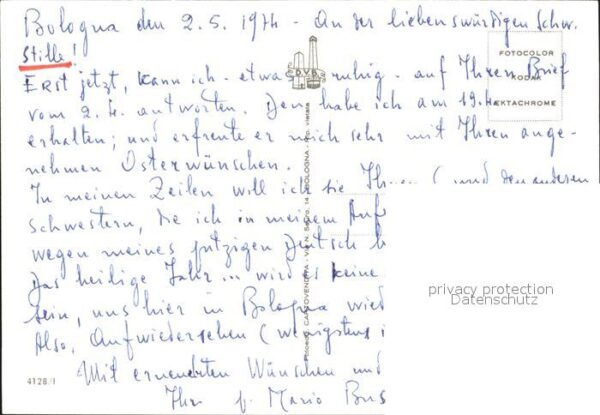 Bologna den 2.5.1974 - An der liebenswürdigen Schw.
Stille!
Erst jetzt, kann ich - etwas ruhig - auf Ihren Brief
vom 2.4. antworten. Den habe ich am 19.4.
erhalten; und erfreute er mich sehr mit Ihren ange-
nehmen Osterwünschen.
In meinen Zeilen will ich sie Ihnen (und den anderen
Schwestern, die ich in meinem
wegen meines putzigen Deutsch
Das heilige Jahr... wird es keine
sein, uns hier in Bologna
Also, Aufwiedersehen (wenigstens
Mit erneuerten Wünschen und
Ihr p. Mario
FOTOCOLOR
KODAK
EKTACHROME
D.V.B.
privacy protection
Datenschutz
4128/I